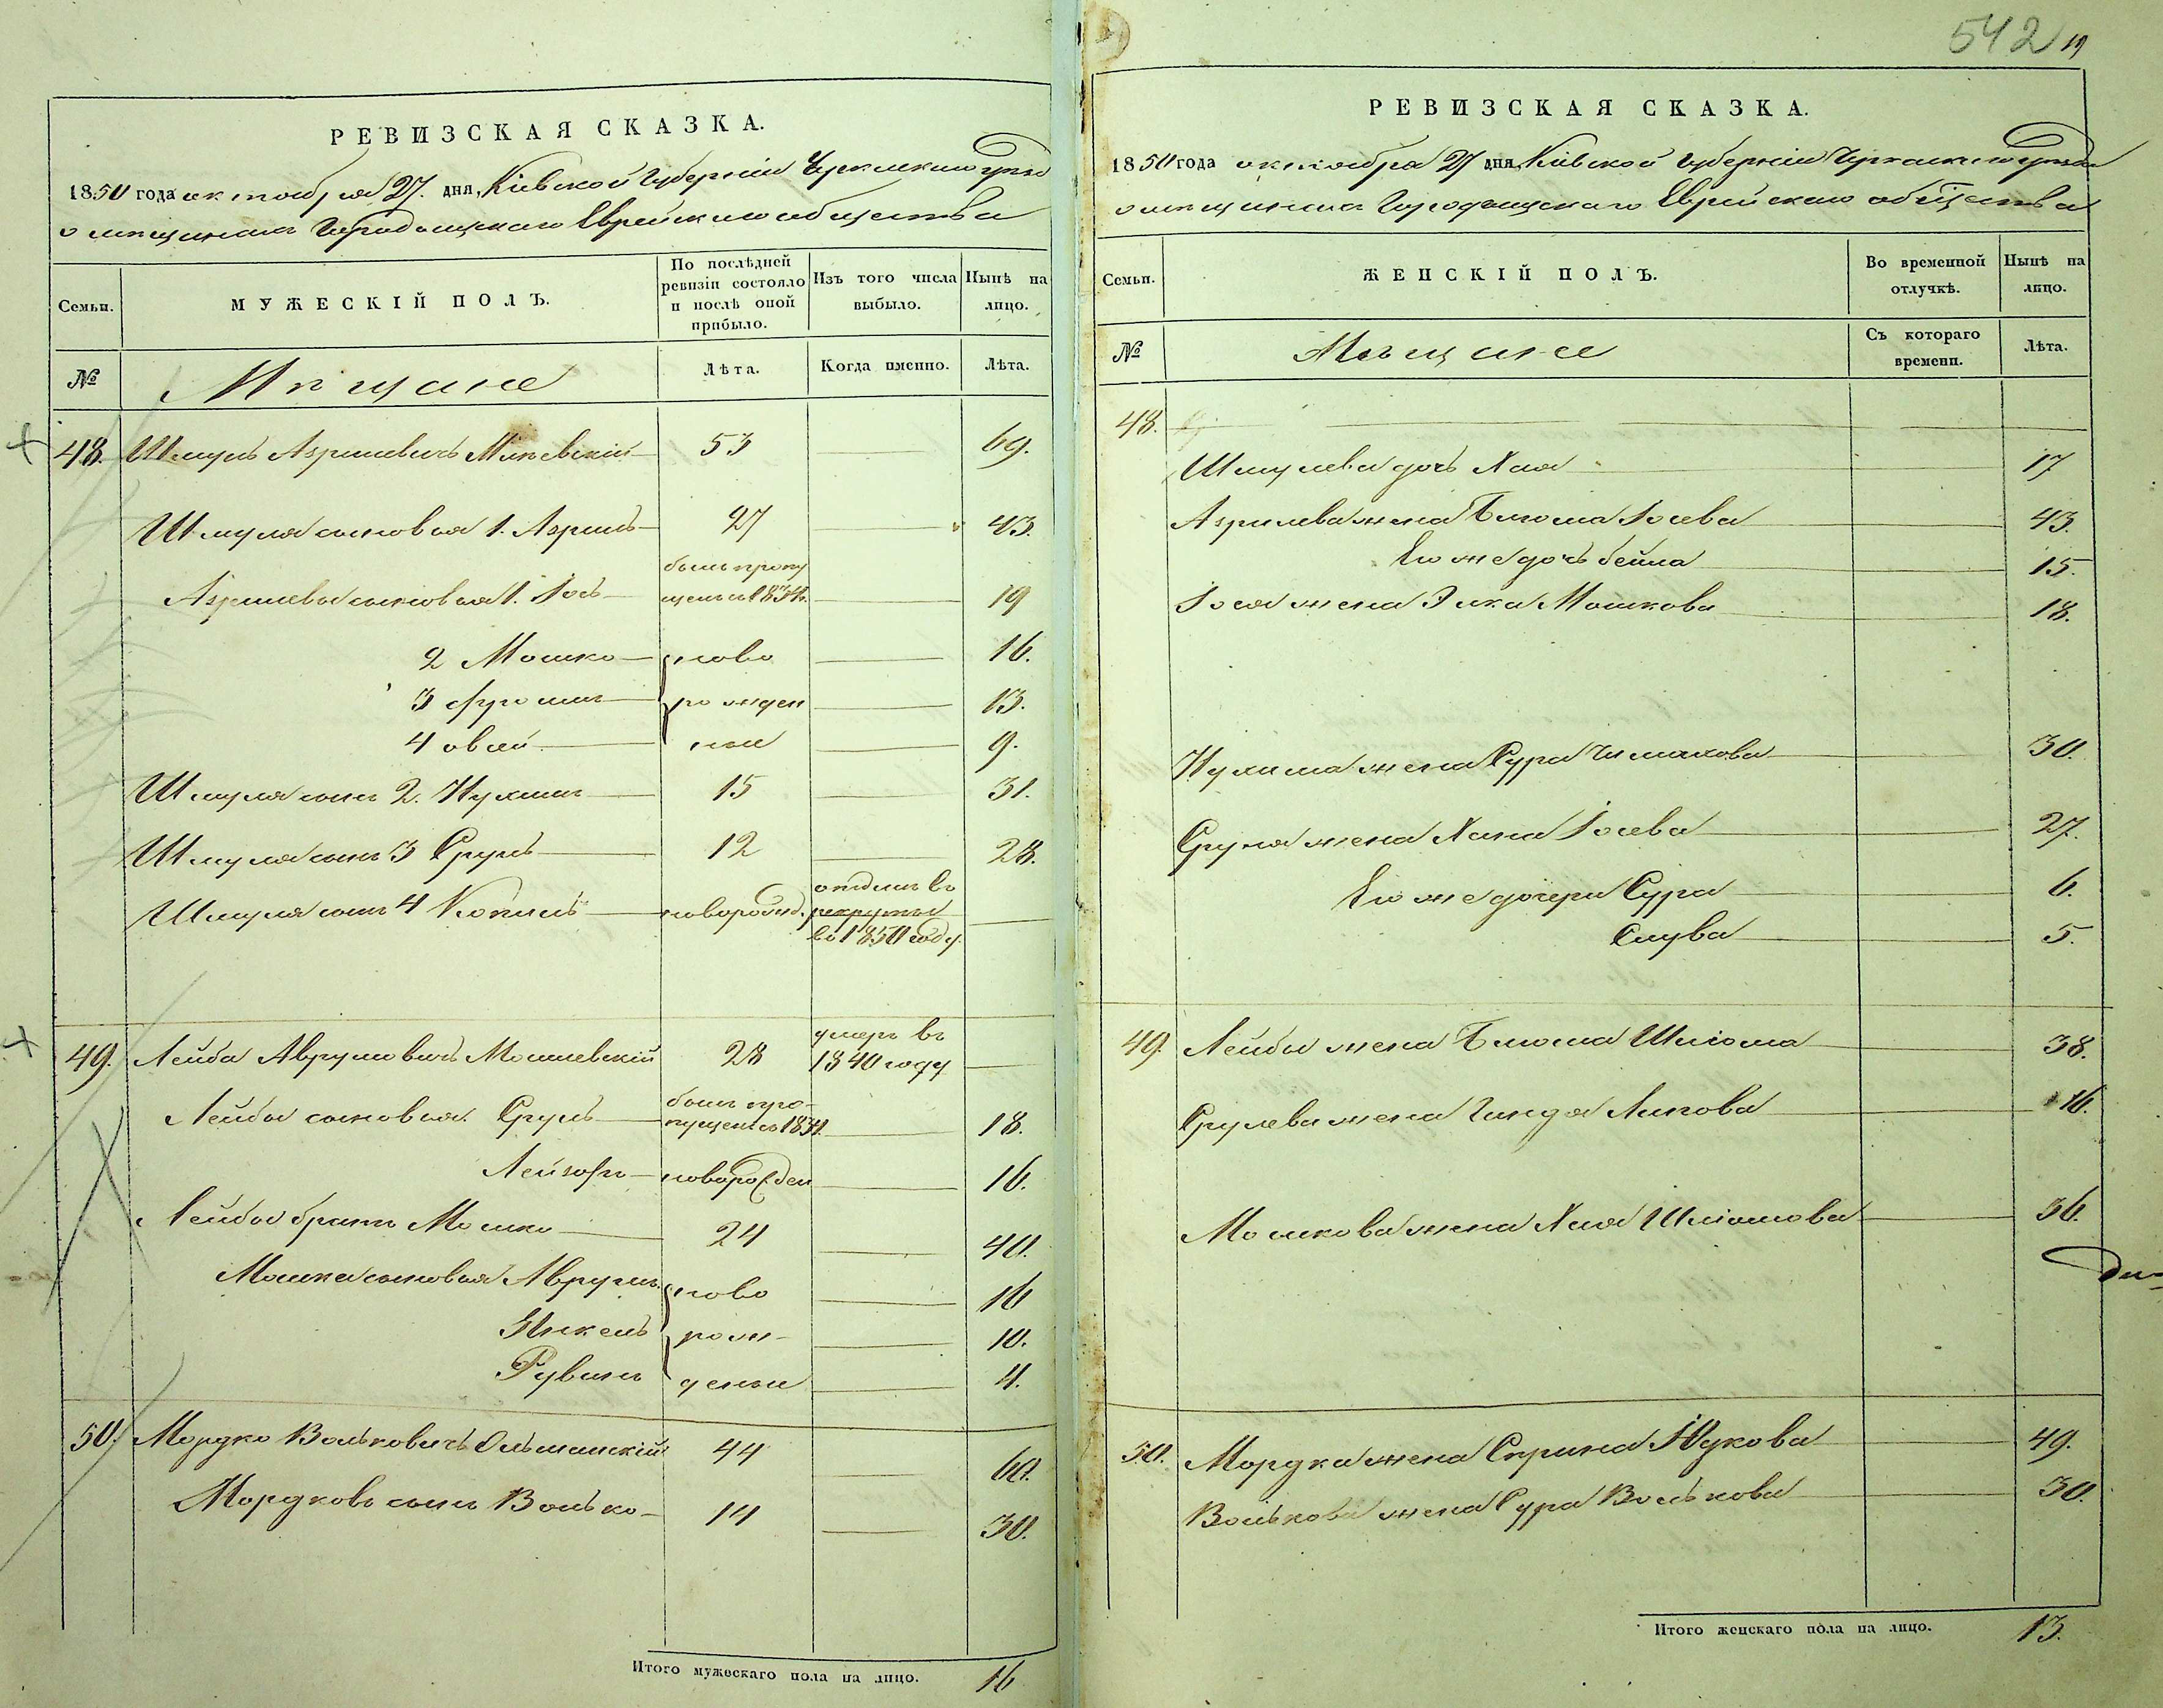 РЕВИЗСКАЯ СКАЗКА.
1850 года октября 27. дня, Кіевской Губерніи Черкаскаго уѣзда
о мѣщанахъ Городищскаго Еврейскаго общества
Семьи.
МУЖЕСКІЙ ПОЛЪ.
По послѣдней ревизіи состояло и послѣ оной прибыло.
Изъ того числа выбыло.
Нынѣ на лицо.
№
Мѣщане
Лѣта.
Когда именно.
Лѣта.
48. Шмуль Азрилевичъ 53 69.
Шмуля сыновья 1. Азриль 27 43.
Азрилевы сыновья 1. Іось былъ пропущенъ съ 1834 19
2 Мошко ново 16.
3 Фроимъ рожден 13.
4 Овсей ные 9.
Шмуля сынъ 2. Нухимъ 15 31.
Шмуля сынъ 3 Сруль 12 28.
Шмуля сынъ 4 Копель новорожд. отданъ въ рекруты въ 1850 году
49. Лейба Аврумовичъ Мошневскій 28 умеръ въ 1840 году
Лейбы сыновья Сруль былъ пропущенъ съ 1834 18.
Лейзоръ новорожден 16.
Лейбы братъ Мошко 24 40.
Мошка сыновья Аврумъ ново 16
Янкель рож- 10.
Рувинъ денные 4.
50. Мордко Вольковичъ Ольшанскій 44 60.
Мордковъ сынъ Волько 14 30.
Итого мужескаго пола на лицо. 16
542 19
РЕВИЗСКАЯ СКАЗКА.
1850 года октября 27 дня, Кіевской Губерніи Черкаскаго уѣзда
о мѣщанахъ Городищскаго Еврейскаго общества
Семьи.
ЖЕНСКІЙ ПОЛЪ.
Во временной отлучкѣ.
Нынѣ на лицо.
№
Мѣщане
Съ котораго времени.
Лѣта.
48.
Шмулева дочь Хая 17
Азрилева жена Блюма Іосева 43.
Его же дочь Бейла 15.
Іося жена Элка Мошкова 18.
Нухима жена Сура 30.
Сруля жена Хана Іосева 27.
Его же дочери Сура 6.
Слува 5.
49. Лейбы жена Блюма Шліома 38.
Срулева жена Гинда Липова 16.
Мошкова жена Хая Шліомова 36.
50. Мордка жена Сприна Юдкова 49.
Волькова жена Сура Волькова 30.
Итого женскаго пола на лицо. 13.